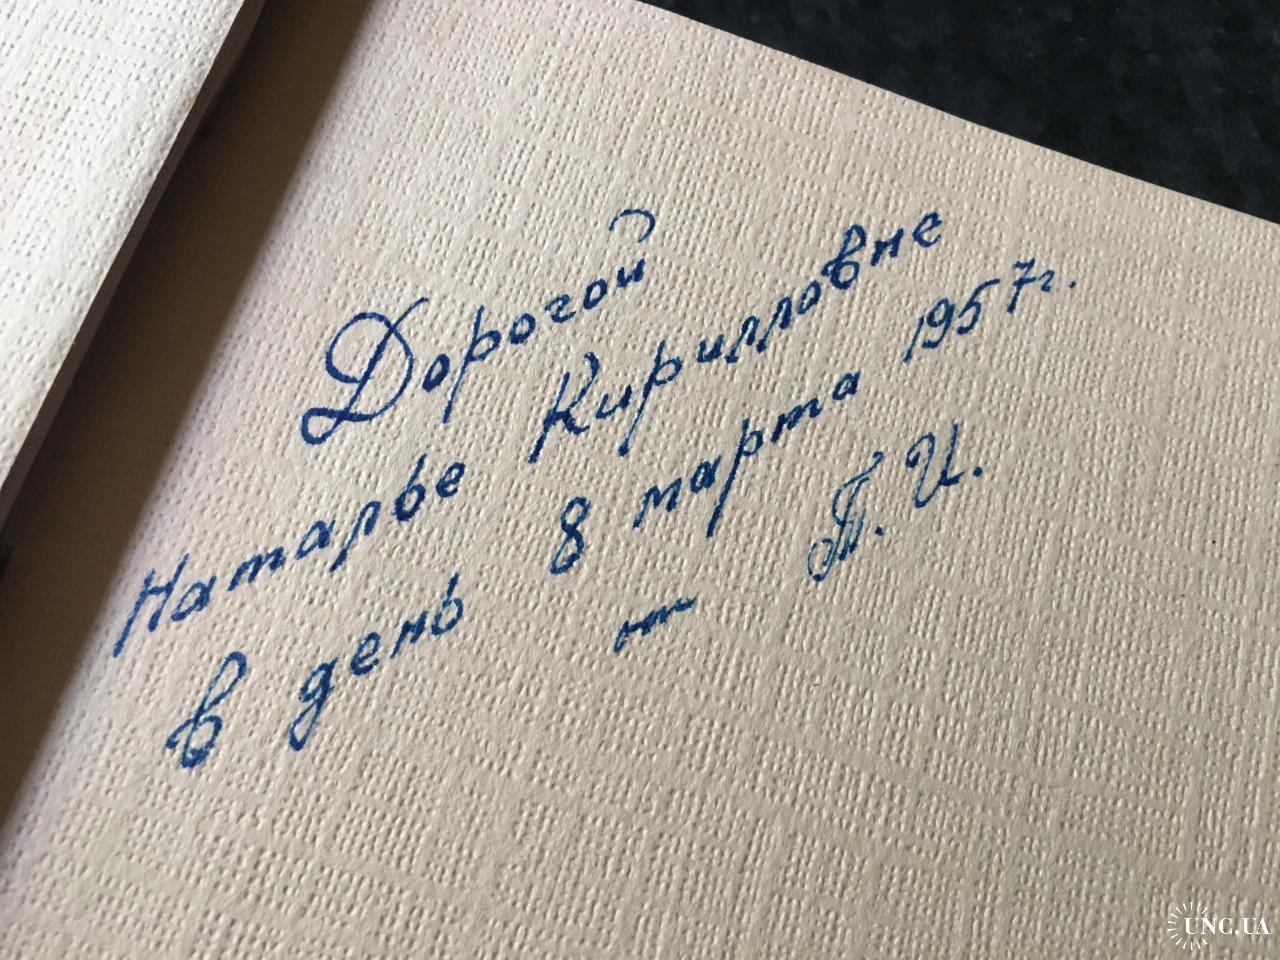 Дорогой
Наталье Кирилловне
в день 8 марта 1957г.
от П. И.
UNC.UA